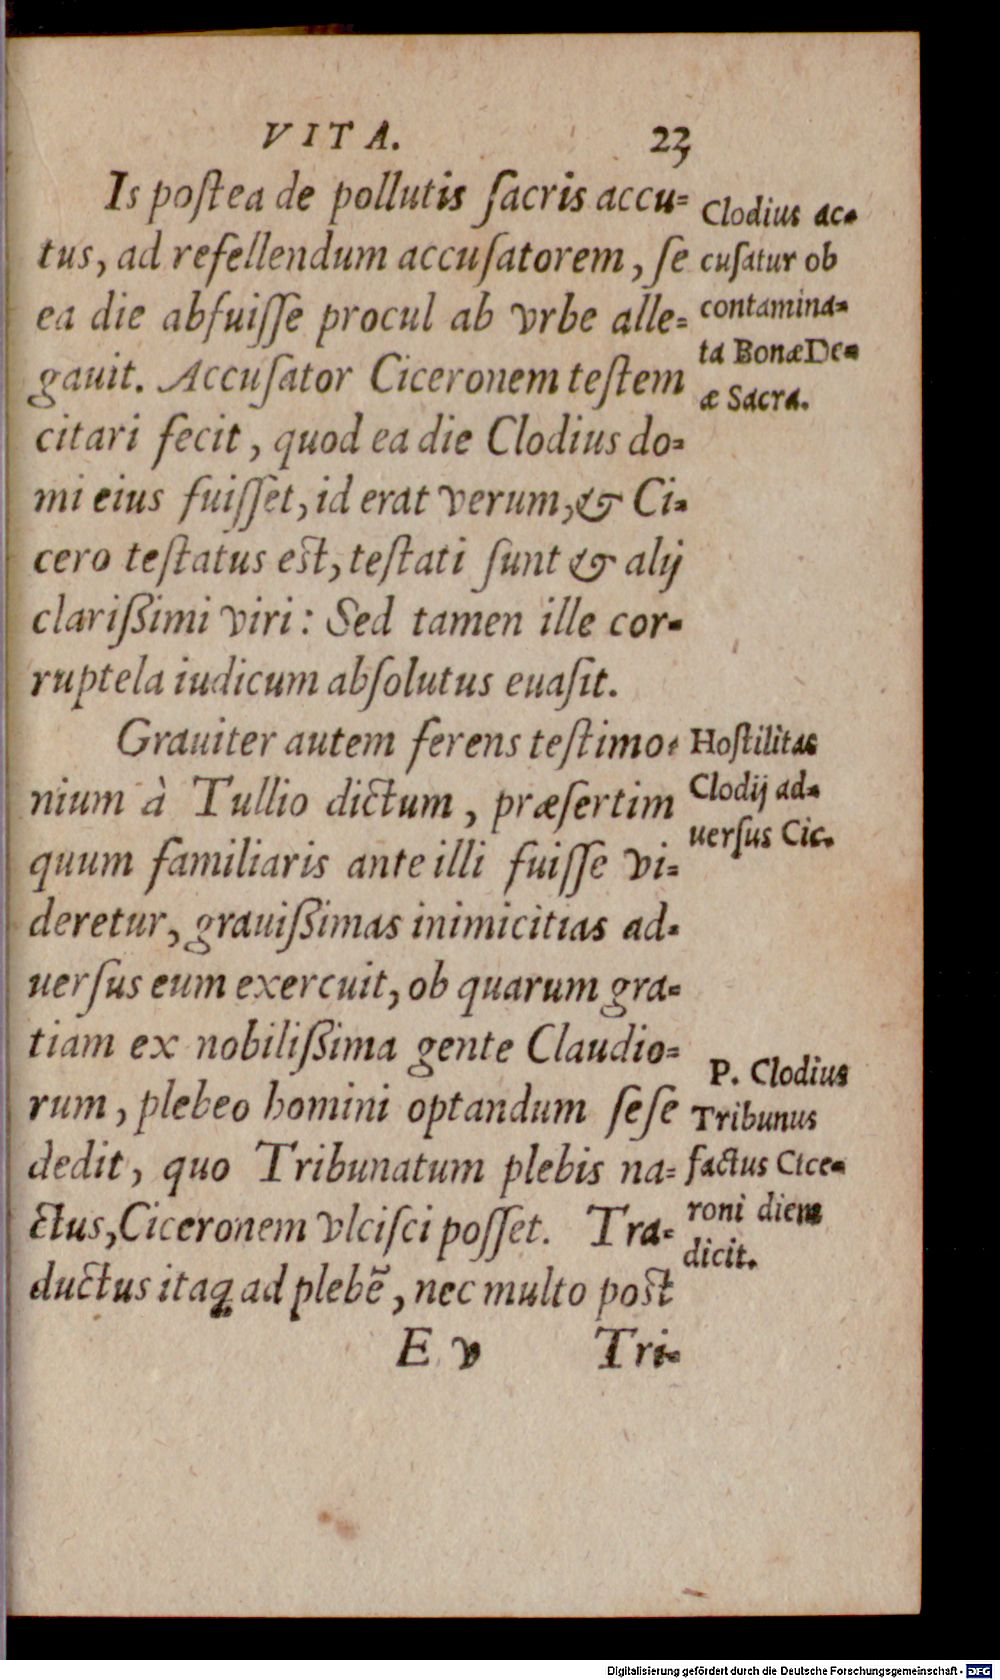 VITA. 23
Is poſtea de pollutis ſacris accu=
tus, ad refellendum accuſatorem, ſe
ea die abfuiſſe procul ab vrbe alle=
gauit. Accuſator Ciceronem teſtem
citari fecit, quod ea die Clodius do=
mi eius fuiſſet, id erat verum, & Ci=
cero teſtatus eſt, teſtati ſunt & alij
clarißimi viri: Sed tamen ille cor=
ruptela iudicum abſolutus euaſit.
Grauiter autem ferens teſtimo=
nium à Tullio dictum, præſertim
quum familiaris ante illi fuiſſe vi=
deretur, grauißimas inimicitias ad=
uerſus eum exercuit, ob quarum gra=
tiam ex nobilißima gente Claudio=
rum, plebeo homini optandum ſeſe
dedit, quo Tribunatum plebis na=
ctus, Ciceronem vlciſci poſſet. Tra=
ductus itaq; ad plebē, nec multo poſt
E v Tri=
Clodius ac=
cuſatur ob
contamina=
ta Bonæ De=
æ Sacra.
Hoſtilitas
Clodij ad=
uerſus Cic.
P. Clodius
Tribunus
factus Cice=
roni diem
dicit.
Digitalisierung gefördert durch die Deutsche Forschungsgemeinschaft - DFG